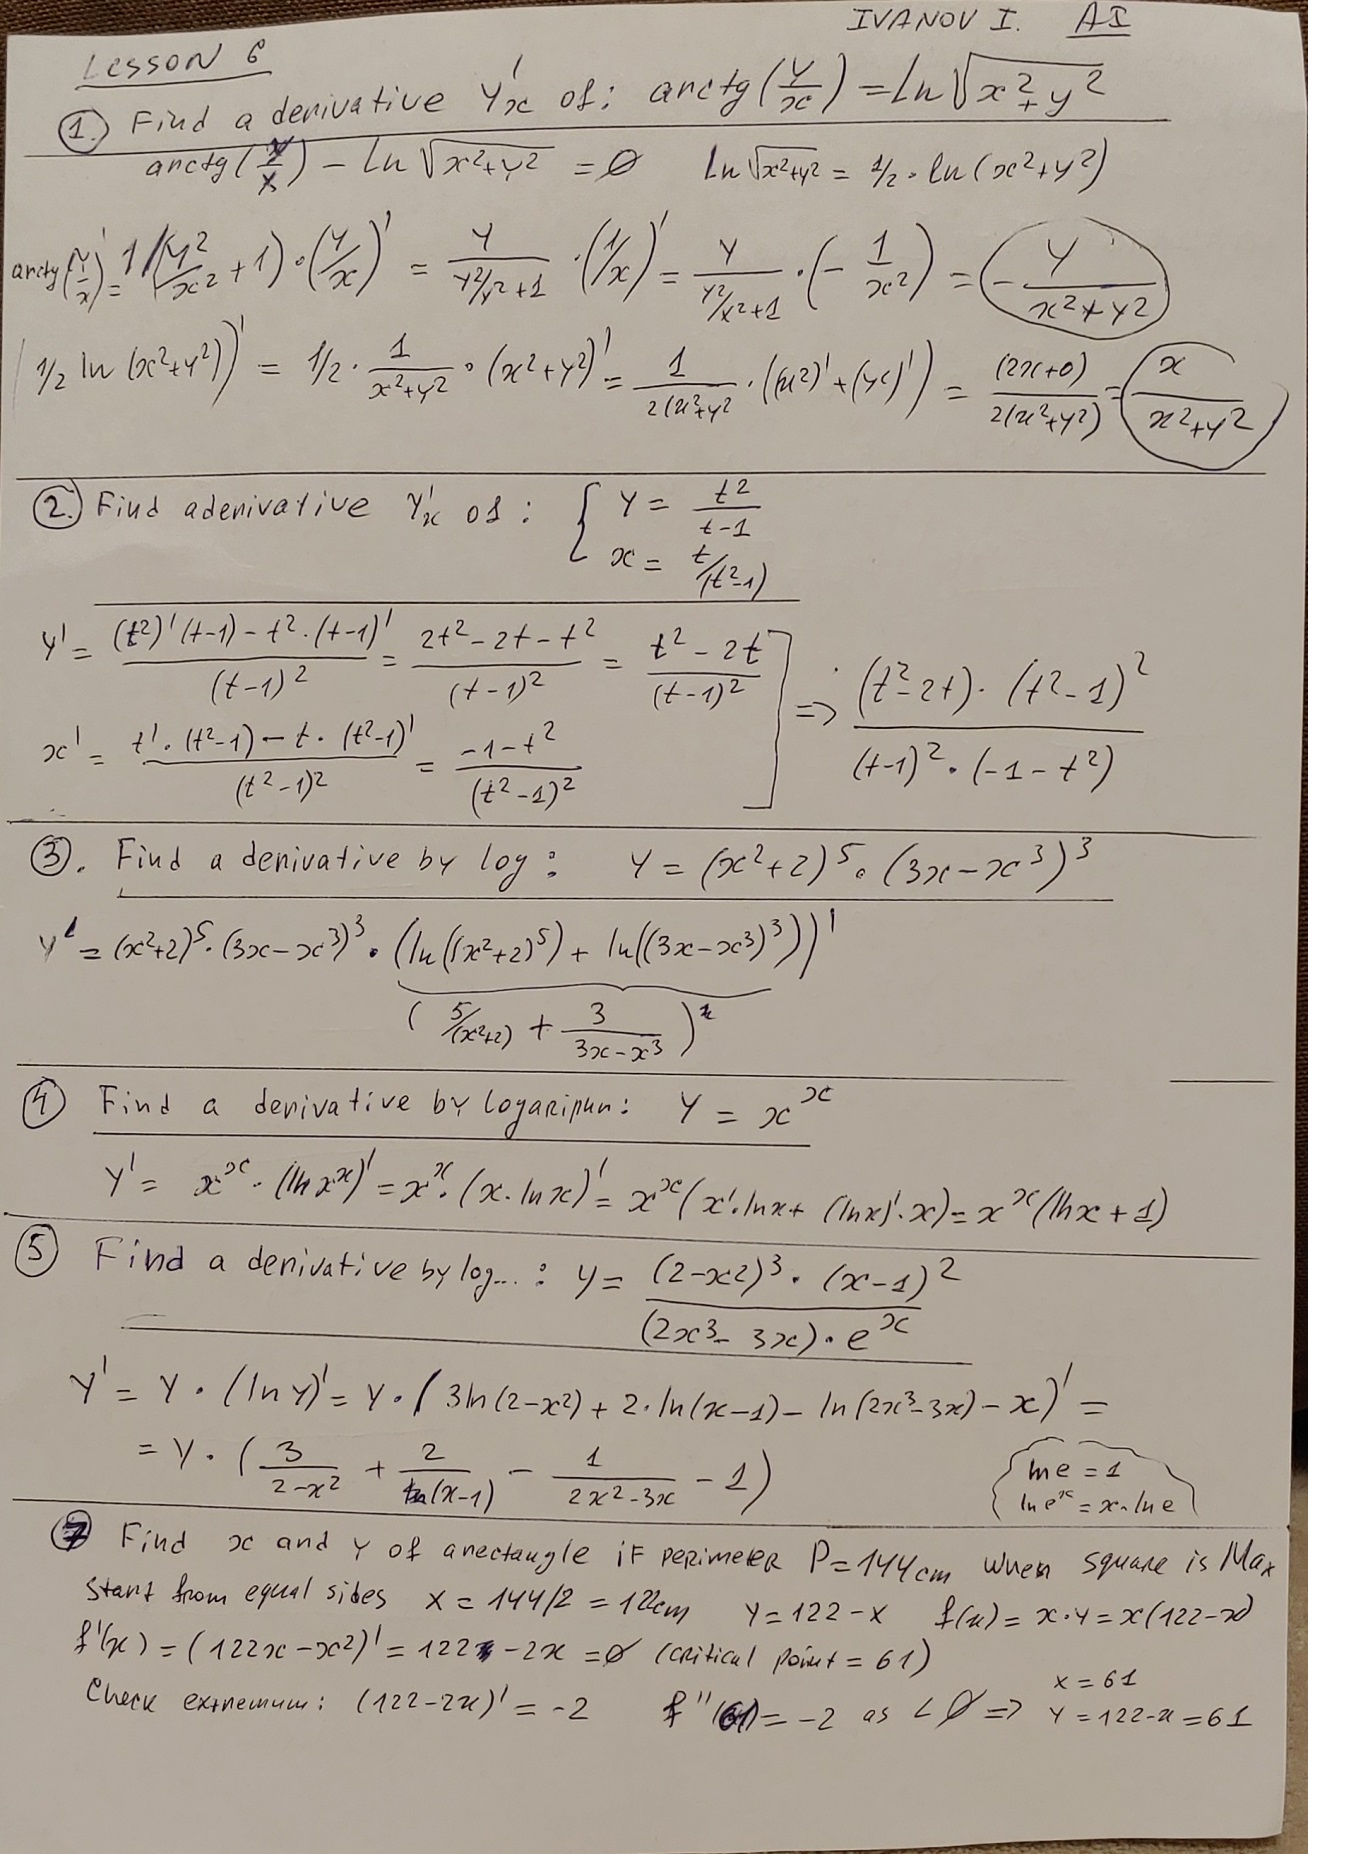 IVANOV I. AI
LESSON 6
1. Find a derivative Y'x of: arctg(y/x) = ln√(x²+y²)
arctg(y/x) - ln√(x²+y²) = 0 ln√(x²+y²) = 1/2 · ln(x²+y²)
arctg(y/x)' = 1/(y²/x² + 1) · (y/x)' = y/(y²/x²+1) · (1/x)' = y/(y²/x²+1) · (-1/x²) = -y/(x²+y²)
(1/2 ln(x²+y²))' = 1/2 · 1/(x²+y²) · (x²+y²)' = 1/(2(x²+y² · ((x²)'+(y²)') = (2x+0)/(2(x²+y²)) = x/(x²+y²)
2. Find a derivative Y'x of: { y = t²/(t-1)
x = t/(t²-1)
y' = ((t²)'(t-1) - t²·(t-1)')/(t-1)² = (2t²-2t-t²)/(t-1)² = (t²-2t)/(t-1)² ] => ((t²-2t)·(t²-1)²)/((t-1)²·(-1-t²))
x' = (t'·(t²-1) - t·(t²-1)')/(t²-1)² = (-1-t²)/(t²-1)²
3. Find a derivative by log: y = (x²+2)⁵ · (3x-x³)³
y' = (x²+2)⁵·(3x-x³)³ · (ln((x²+2)⁵) + ln((3x-x³)³))'
(5/(x²+2) + 3/(3x-x³))
4 Find a derivative by logaripm: y = x^x
y' = x^x · (ln x^x)' = x^x · (x·lnx)' = x^x(x'·lnx + (lnx)'·x) = x^x(lnx + 1)
5 Find a derivative by log... : y = ((2-x2)³ · (x-1)²)/((2x³-3x)·e^x)
y' = y · (ln y)' = y · (3ln(2-x²) + 2·ln(x-1) - ln(2x³-3x) - x)' =
= y · (3/(2-x²) + 2/(x-1) - 1/(2x²-3x) - 1)
ln e = 1
ln e^x = x·ln e
7 Find x and y of a rectangle if perimeter P=144cm when square is Max
Start from equal sides x = 144/2 = 122cm y = 122-x f(x) = x·y = x(122-x)
f'(x) = (122x-x²)' = 122-2x = 0 (critical point = 61)
Check extremum: (122-2x)' = -2 f''(61) = -2 as <0 => x = 61
y = 122-x = 61